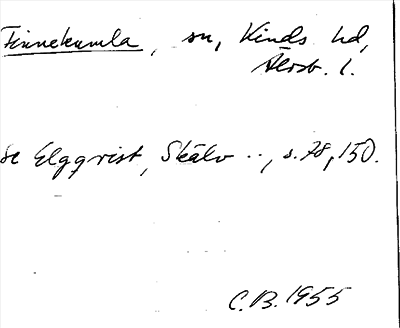 Finnekumla, sn, Kinds hd,
Älvsb. l.
se Elgqvist, Skälv .., s. 78, 150.
C.B. 1955